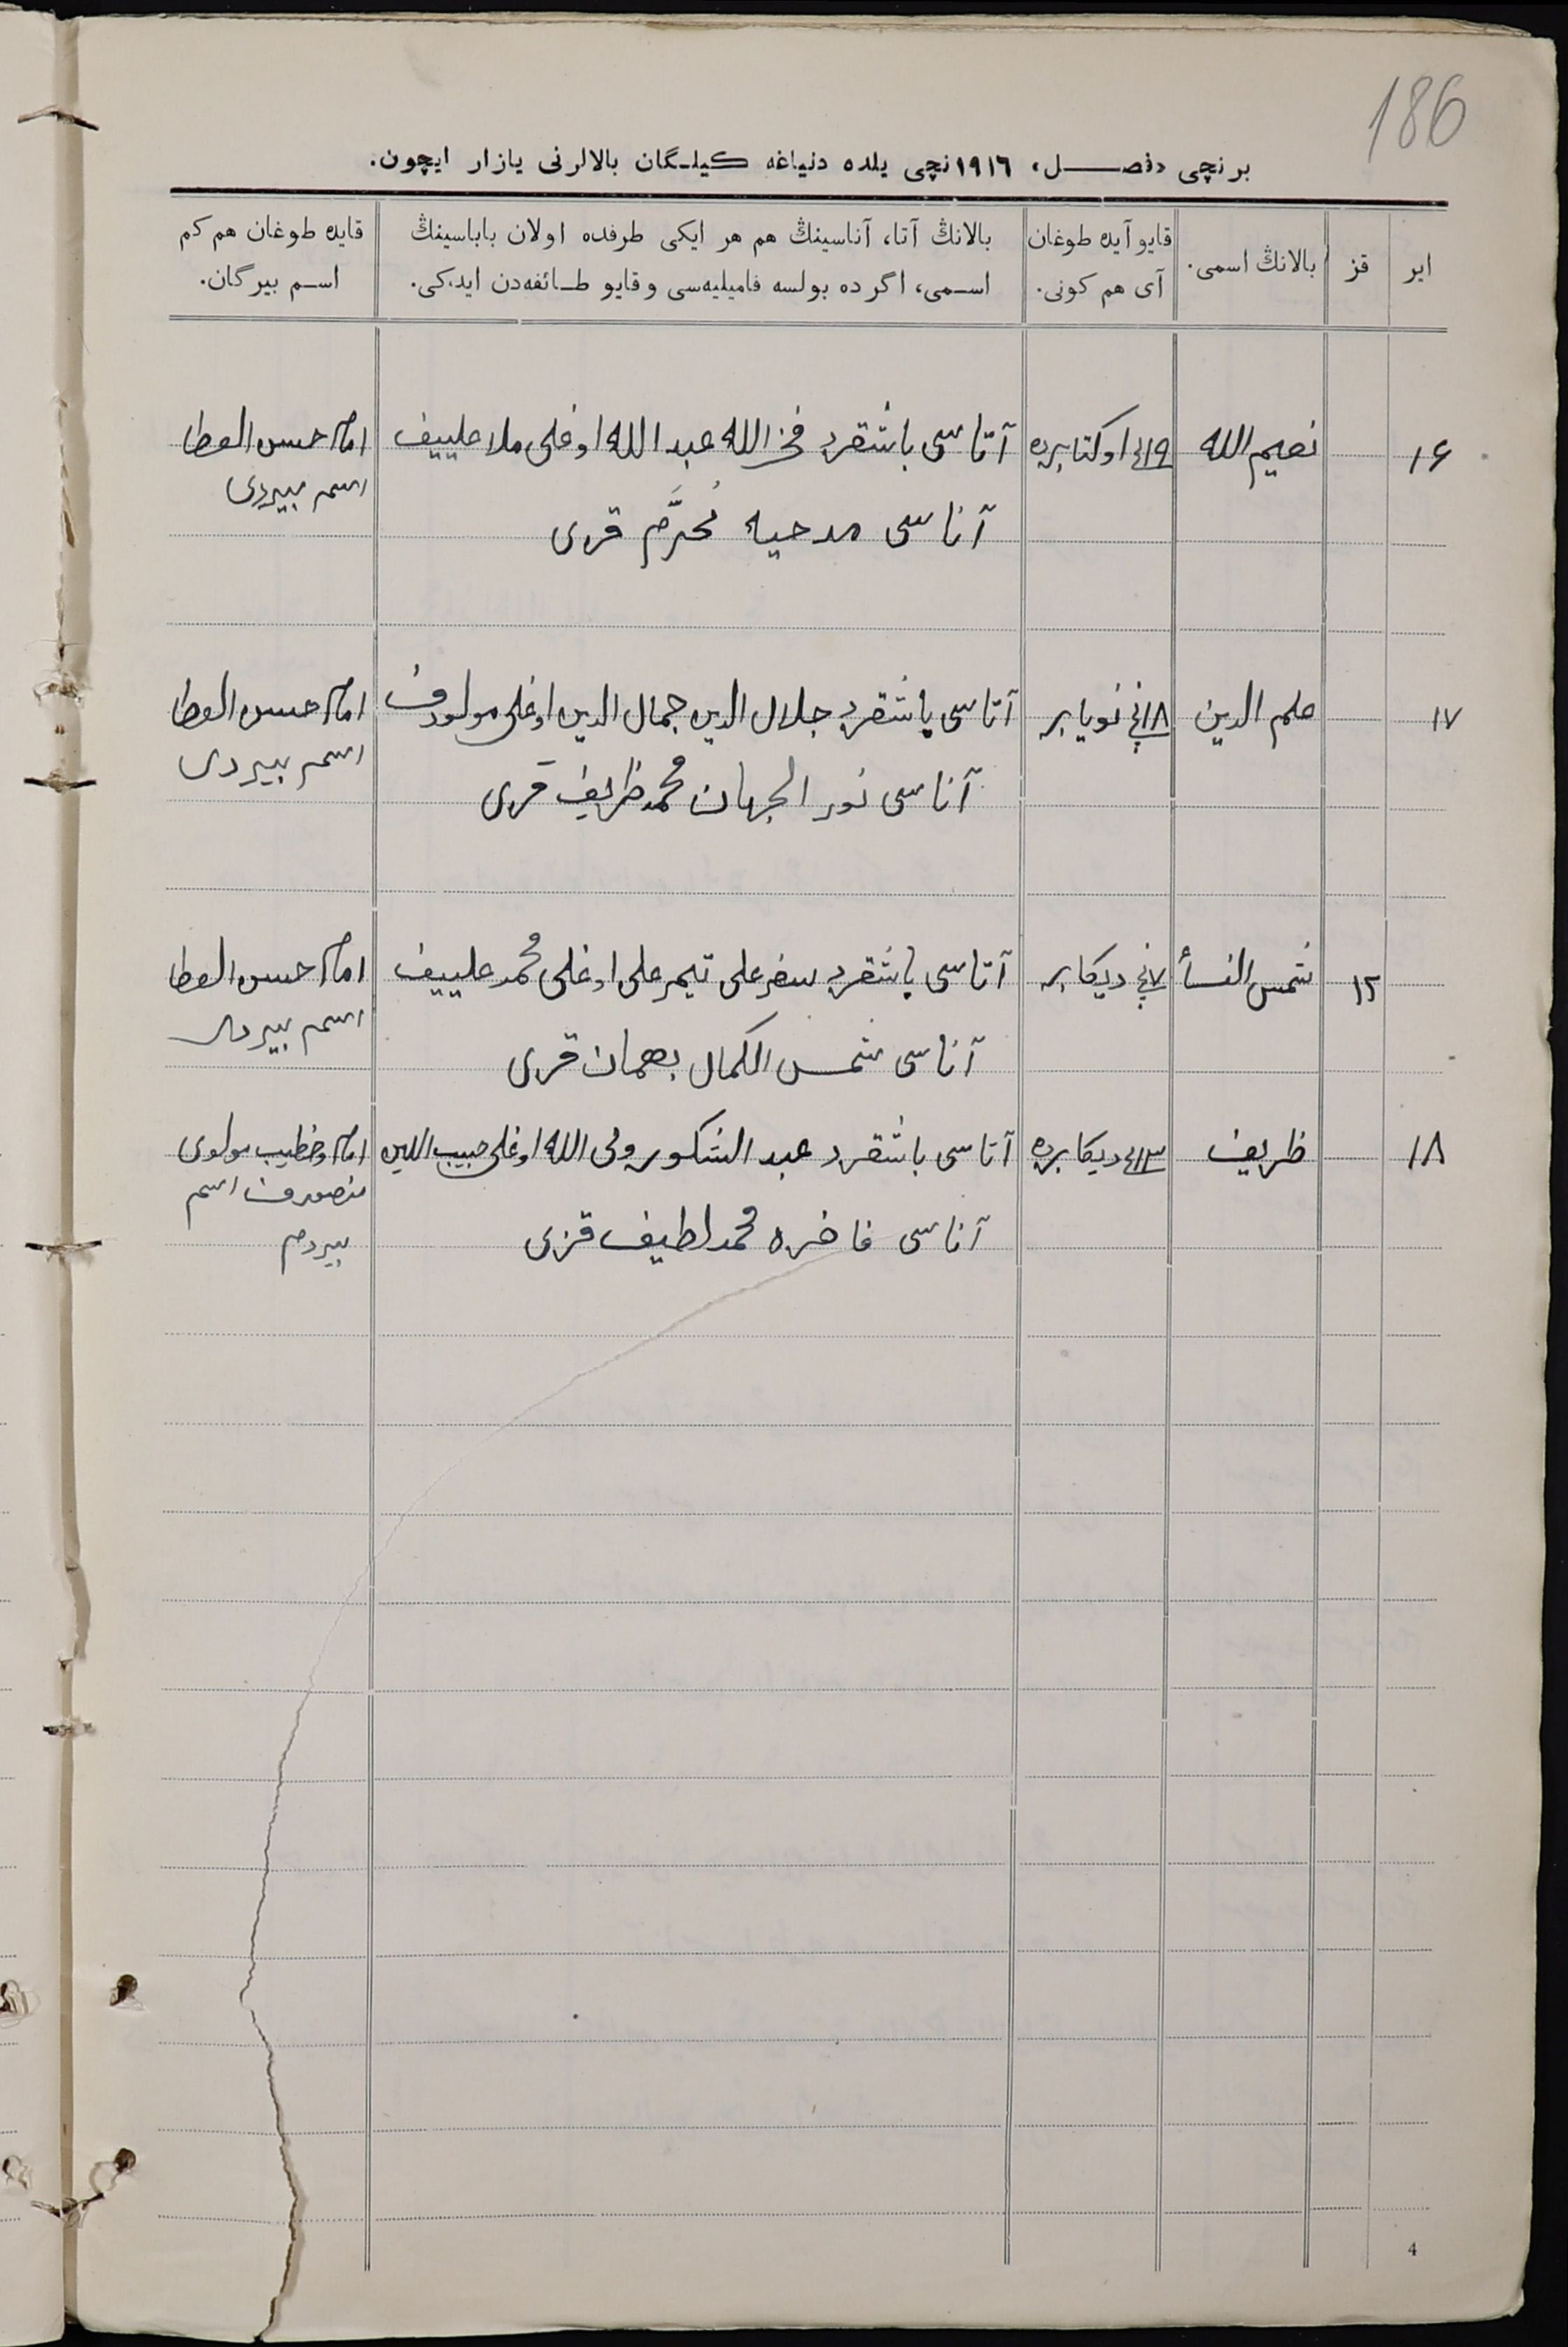 186
برنچی «فصـــل» ١٩١٦نچی یلده دنیاغه کیلـگان بالالرنی یازار ایچون.
ایر
قز
بالانڭ اسمی.
قایو آیده طوغان
آی هم کونی.
بالانڭ آتا، آناسینڭ هم هر ایکی طرفده اولان باباسینڭ
اسـمی، اگرده بولسه فامیلیه‌سی وقایو طـائفه‌دن ایدکی.
قایده طوغان هم کم
اسـم بیرگان.
١٦ نعیم الله ١٩نچی اوکتابرده آتاسی باشقرد فخر الله عبد الله اوغلی ملا علییف امام حسن العطا
اسم بیردی
آناسی مدحیه مُحرَّم قزی
١٧ علم الدین ١٨نچی نویابر آتاسی باشقرد جلال الدین جمال الدین اوغلی مولودف امام حسن العطا
اسم بیردی
آناسی نور الجهان محمد ظریف قزی
١٢ شمس النسأ ٧نچی دیکابر آتاسی باشقرد سفر علی تیمر علی اوغلی محمد علییف امام حسن العطا
اسم بیردی
آناسی شمس الکمال بهمان قزی
١٨ ظریف ١٣نچی دیکابرده آتاسی باشقرد عبد الشکور ولی الله اوغلی حبیب اللین امام وخطیب مولوی
منصورف اسم
بیردم
آناسی فاخره محمد لطیف قزی
4